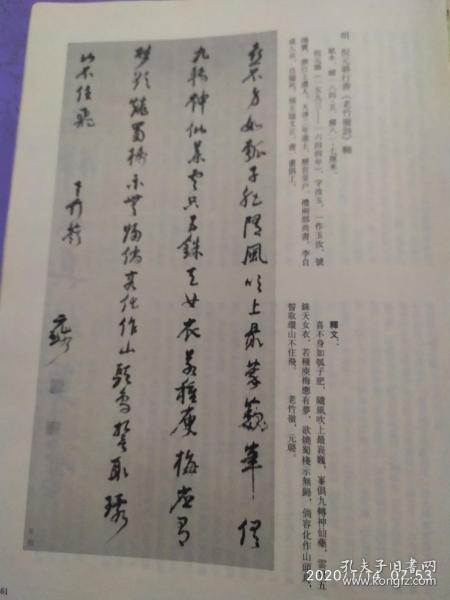 明　倪元璐行書《老竹嶺詩》軸
紙本
倪元璐（一五九三——一六四四年），字汝玉，一作玉汝，號
鴻寶，浙江上虞人。天啟二年進士，歷官至戶、禮兩部尚書，李自
成入京，自縊死，福王諡文正。書、畫俱工。
釋文：
喜不身如瓠子肥，隨風吹上最崔巍，峯俱九轉神仙藥，雲只五
銖天女衣，若種庾梅應有夢，欲燒蜀棧示無歸，倘容化作山頭鳥，
誓取環山不住飛。　老竹嶺，元璐。
喜不身如瓠子肥隨風吹上最崔巍峯峯俱
九轉神仙藥雲只五銖天女衣若種庾梅應有
欲燒蜀棧示無歸倘容化作山頭鳥誓取環
山不住飛
老竹嶺
元璐
61
2020/1/14 07:53
孔夫子旧书网